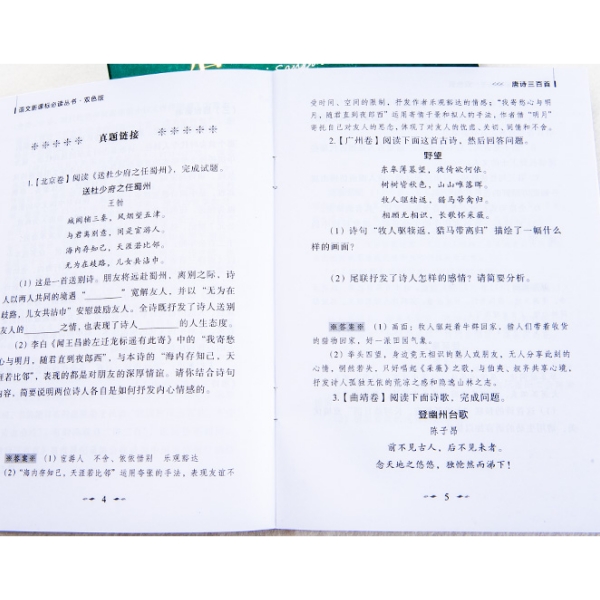 语文新课标必读丛书·双色版
真题链接
1.【北京卷】阅读《送杜少府之任蜀州》，完成试题。
送杜少府之任蜀州
王勃
城阙辅三秦，风烟望五津。
与君离别意，同是宦游人。
海内存知己，天涯若比邻。
无为在歧路，儿女共沾巾。
（1）这是一首送别诗。朋友将远赴蜀州，离别之际，诗
人以两人共同的境遇“________”宽解友人，并以“无为在
歧路，儿女共沾巾”安慰鼓励友人。全诗既抒发了诗人送别
友人的________之情，也表现了诗人________的人生态度。
（2）李白《闻王昌龄左迁龙标遥有此寄》中的“我寄愁
心与明月，随君直到夜郎西”，与本诗的“海内存知己，天
涯若比邻”，表现的都是对朋友的深厚情谊。请你结合诗句
内容，简要说明两位诗人各自是如何抒发内心情感的。
※答案※ （1）宦游人 不分、依依惜别 乐观豁达
（2）“海内存知己，天涯若比邻”运用夸张的手法，表现友谊不
4
<<< 唐诗三百首
受时间、空间的限制，抒发作者乐观豁达的情感；“我寄愁心与明
月，随君直到夜郎西”运用寄情于景和拟人的手法，作者借“明月”
寄托自己对友人的思念，体现了对友人的忧虑、关切、同情和不舍。
2.【广州卷】阅读下面这首古诗，然后回答问题。
野望
东皋薄暮望，徙倚欲何依。
树树皆秋色，山山唯落晖。
牧人驱犊返，猎马带禽归。
相顾无相识，长歌怀采薇。
（1）诗句“牧人驱犊返，猎马带禽归”描绘了一幅什么
样的画面？
（2）尾联抒发了诗人怎样的感情？请简要分析。
※答案※ （1）画面：牧人驱赶着牛群回家，猎人们带着收获
的猎物回家，一派田园牧歌式的田园晚景。
（2）举头四望，身边竟无相识的熟人或朋友，无人分享此刻的
心情，惘然若失，只好唱起《采薇》之歌，与伯夷、叔齐共尊心境，
抒发诗人孤独无依的荒凉之感和隐逸山林之志。
3.【曲靖卷】阅读下面诗歌，完成问题。
登幽州台歌
陈子昂
前不见古人，后不见来者。
念天地之悠悠，独怆然而涕下！
5